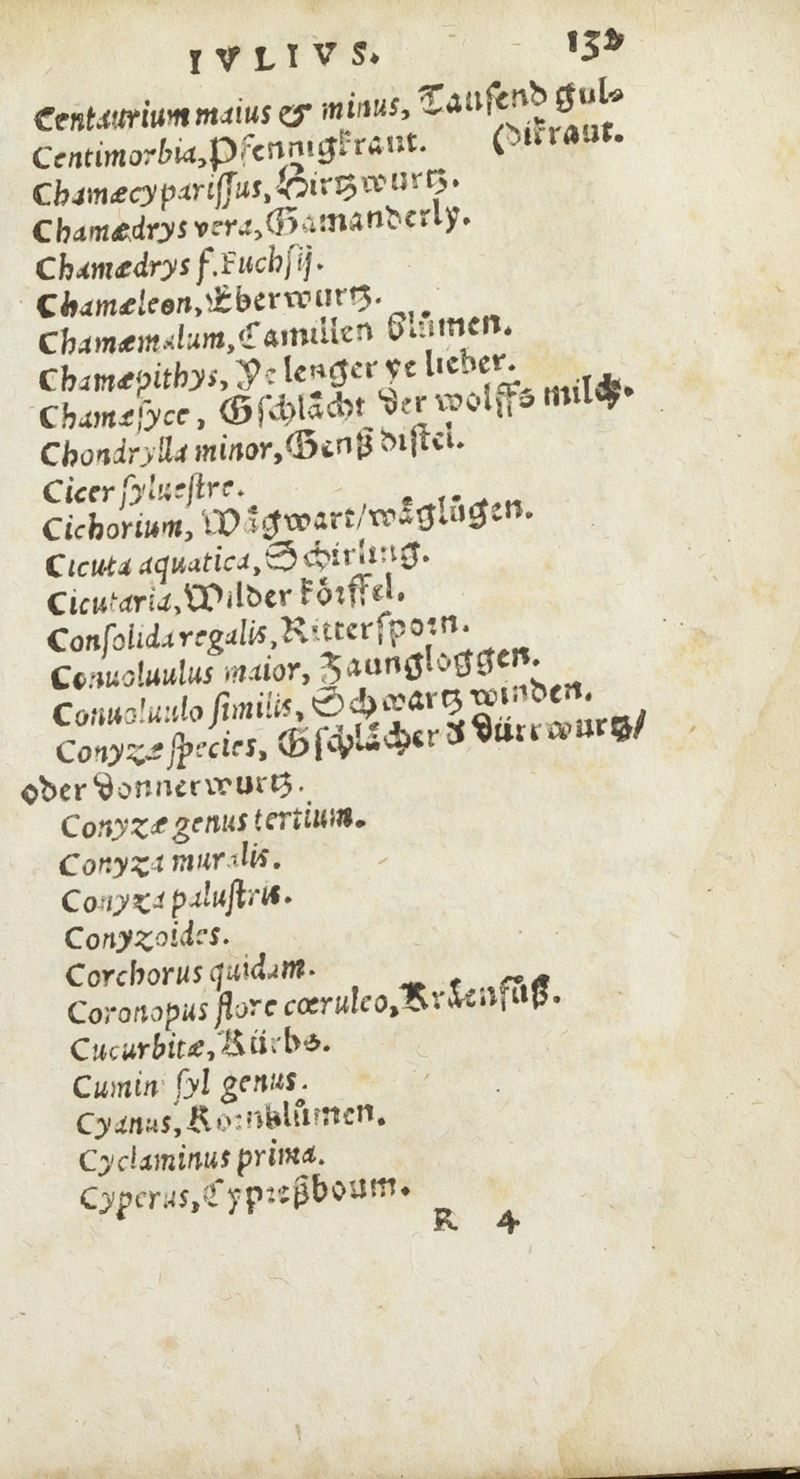 IVLIVS. 132
Centaurium maius & minus, Tausend gul-
Centimorbia, Pfennigkraut. (dikraut.
Chamæcypariſſus, Hirtzwurtz.
Chamædrys vera, Gamanderly.
Chamædrys f. Fuchſij.
Chamæleon, Eberwurtz.
Chamæmalum, Camillen blůmen.
Chamæpithys, Ye lenger ye lieber.
Chamæſyce, Gſchlåcht der wolffs milch.
Chondrylla minor, Genß diſtel.
Cicer ſylueſtre.
Cichorium, Wågwart/wåglůgen.
Cicuta aquatica, Schirling.
Cicutaria, Wilder körffel.
Conſolida regalis, Ritterſporn.
Conuoluulus maior, Zaungloggen.
Conuoluulo ſimilis, Schwartz winden.
Conyzæ ſpecies, Gſchlåcher d dürrwurtz/
oder donnerwurtz.
Conyzæ genus tertium.
Conyza muralis.
Conyza paluſtris.
Conyzoides.
Corchorus quidam.
Coronopus flore cœruleo, Kråenfůß.
Cucurbitæ, Kürbs.
Cumin ſyl genus.
Cyanus, Kornblůmen.
Cyclaminus prima.
Cyperus, Cypreßboum.
R 4